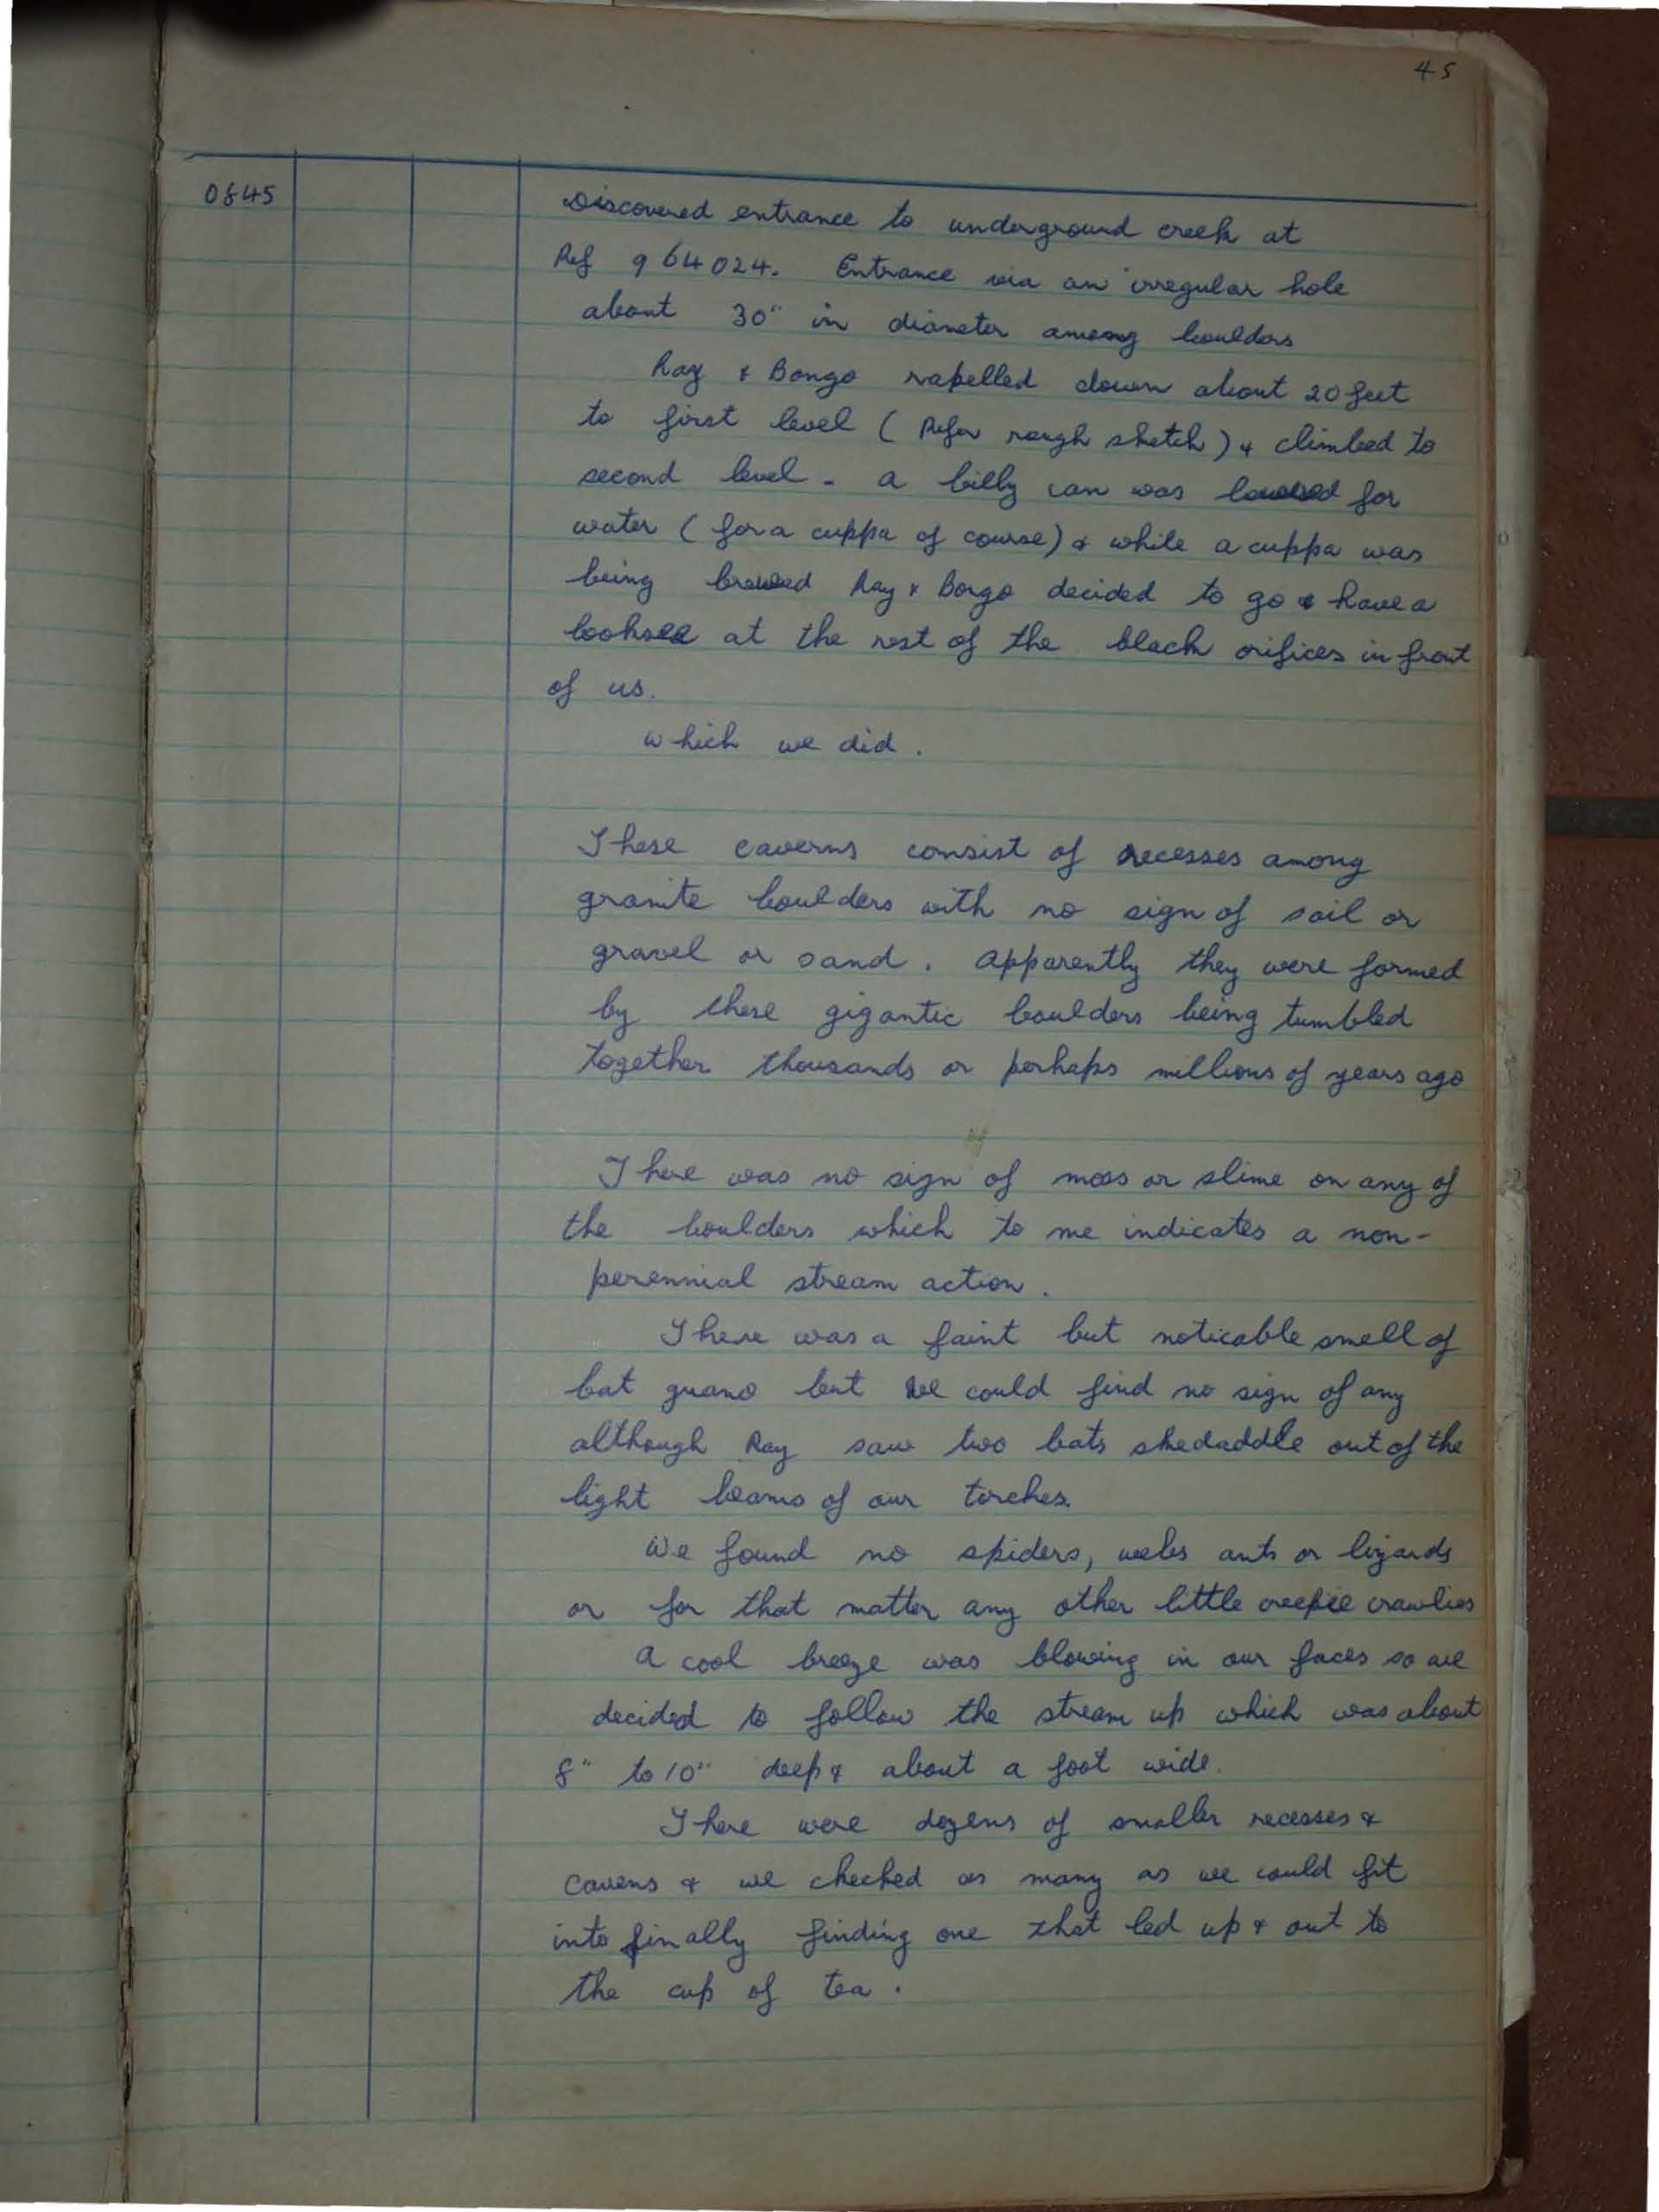 45
0845 Discovered entrance to underground creek at
Ref 964024. Entrance via an irregular hole
about 30" in diameter among boulders
Ray & Bongo rapelled down about 20 feet
to first level ( Refer rough sketch) & climbed to
second level - a billy can was lowered for
water ( for a cuppa of course) & while a cuppa was
being brewed Ray & Bongo decided to go & have a
looksee at the rest of the black orifices in front
of us.
which we did.
These caverns consist of recesses among
granite boulders with no sign of soil or
gravel or sand. Apparently they were formed
by these gigantic boulders being tumbled
together thousands or perhaps millions of years ago
There was no sign of moss or slime on any of
the boulders which to me indicates a non-
perennial stream action.
There was a faint but noticable smell of
bat guano but we could find no sign of any
although Ray saw two bats skedaddle out of the
light beams of our torches.
We found no spiders, webs ants or lizards
or for that matter any other little creepie crawlies
A cool breeze was blowing in our faces so we
decided to follow the stream up which was about
8" to 10" deep & about a foot wide.
There were dozens of smaller recesses &
cavens & we checked as many as we could fit
into finally finding one that led up & out to
the cup of tea.